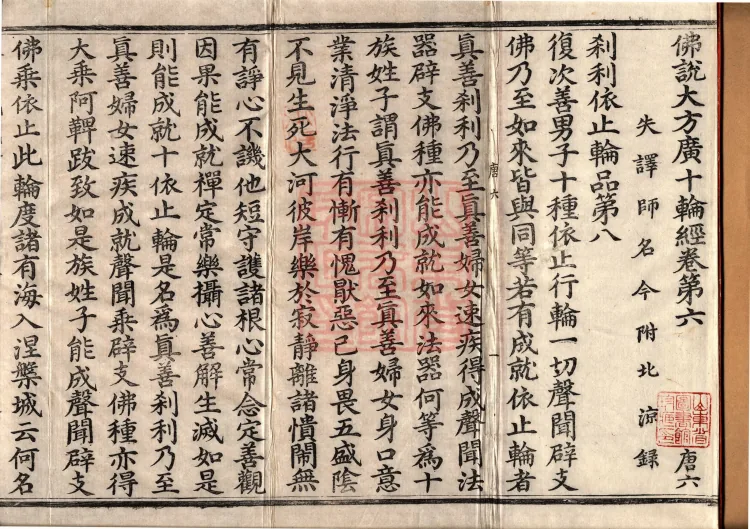 佛說大方廣十輪經卷第六 唐六
失譯師名今附北涼錄
刹利依止輪品第八
復次善男子十種依止行輪一切聲聞辟支
佛乃至如來皆與同等若有成就依止輪者
唐六
真善刹利乃至真善婦女速疾得成聲聞法
器辟支佛種亦能成就如來法器何等為十
族姓子謂真善刹利乃至真善婦女身口意
業清淨法行有慚有愧猒惡已身畏五盛陰
不見生死大河彼岸樂於寂靜離諸憒閙無
有諍心不譏他短守護諸根心常念定善觀
因果能成就禪定常樂攝心善解生滅如是
則能成就十依止輪是名為真善刹利乃至
真善婦女速疾成就聲聞乘辟支佛種亦得
大乘阿鞞跋致如是族姓子能成聲聞辟支
佛乘依止此輪度諸有海入涅槃城云何名